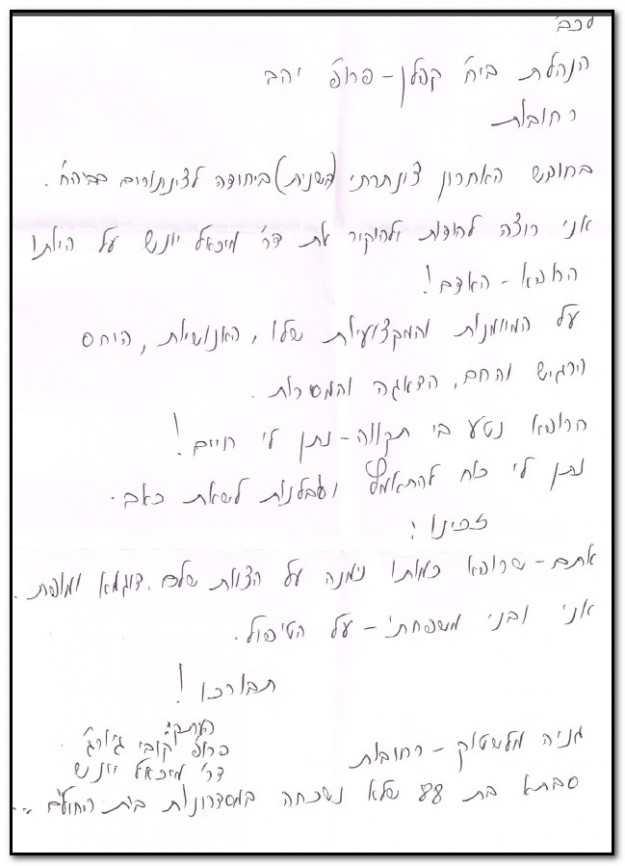 לכב'
הנהלת ביה"ח קפלן - פרופ' יהב
רחובות
בחופש האחרון צונתרתי (בשנית) ביחידה לצינתורים בביה"ח.
אני רוצה להודות ולהוקיר את דר' מיכאל יונש על היותו
הרופא - האדם!
על המיומנות והמקצועיות שלו, האנושיות, היחס
הרגיש והחם, הדאגה והמסירות.
הרופא נטע בי תקווה - נתן לי חיים!
נתן לי כח להתאמץ וסבלנות לשאת כאב.
זכינו:
אתם - שרופא כמותו נימנה על הצוות שלכם. דוגמא ומופת.
אני ובני משפחתי - על הטיפול.
תבורכו!
העתק:
פרופ' קובי ג'ורג'
דר' מיכאל יונש
גניה מלשטוק - רחובות
סבתא בת 88 שלא נשכחה במסדרונות בית החולים...